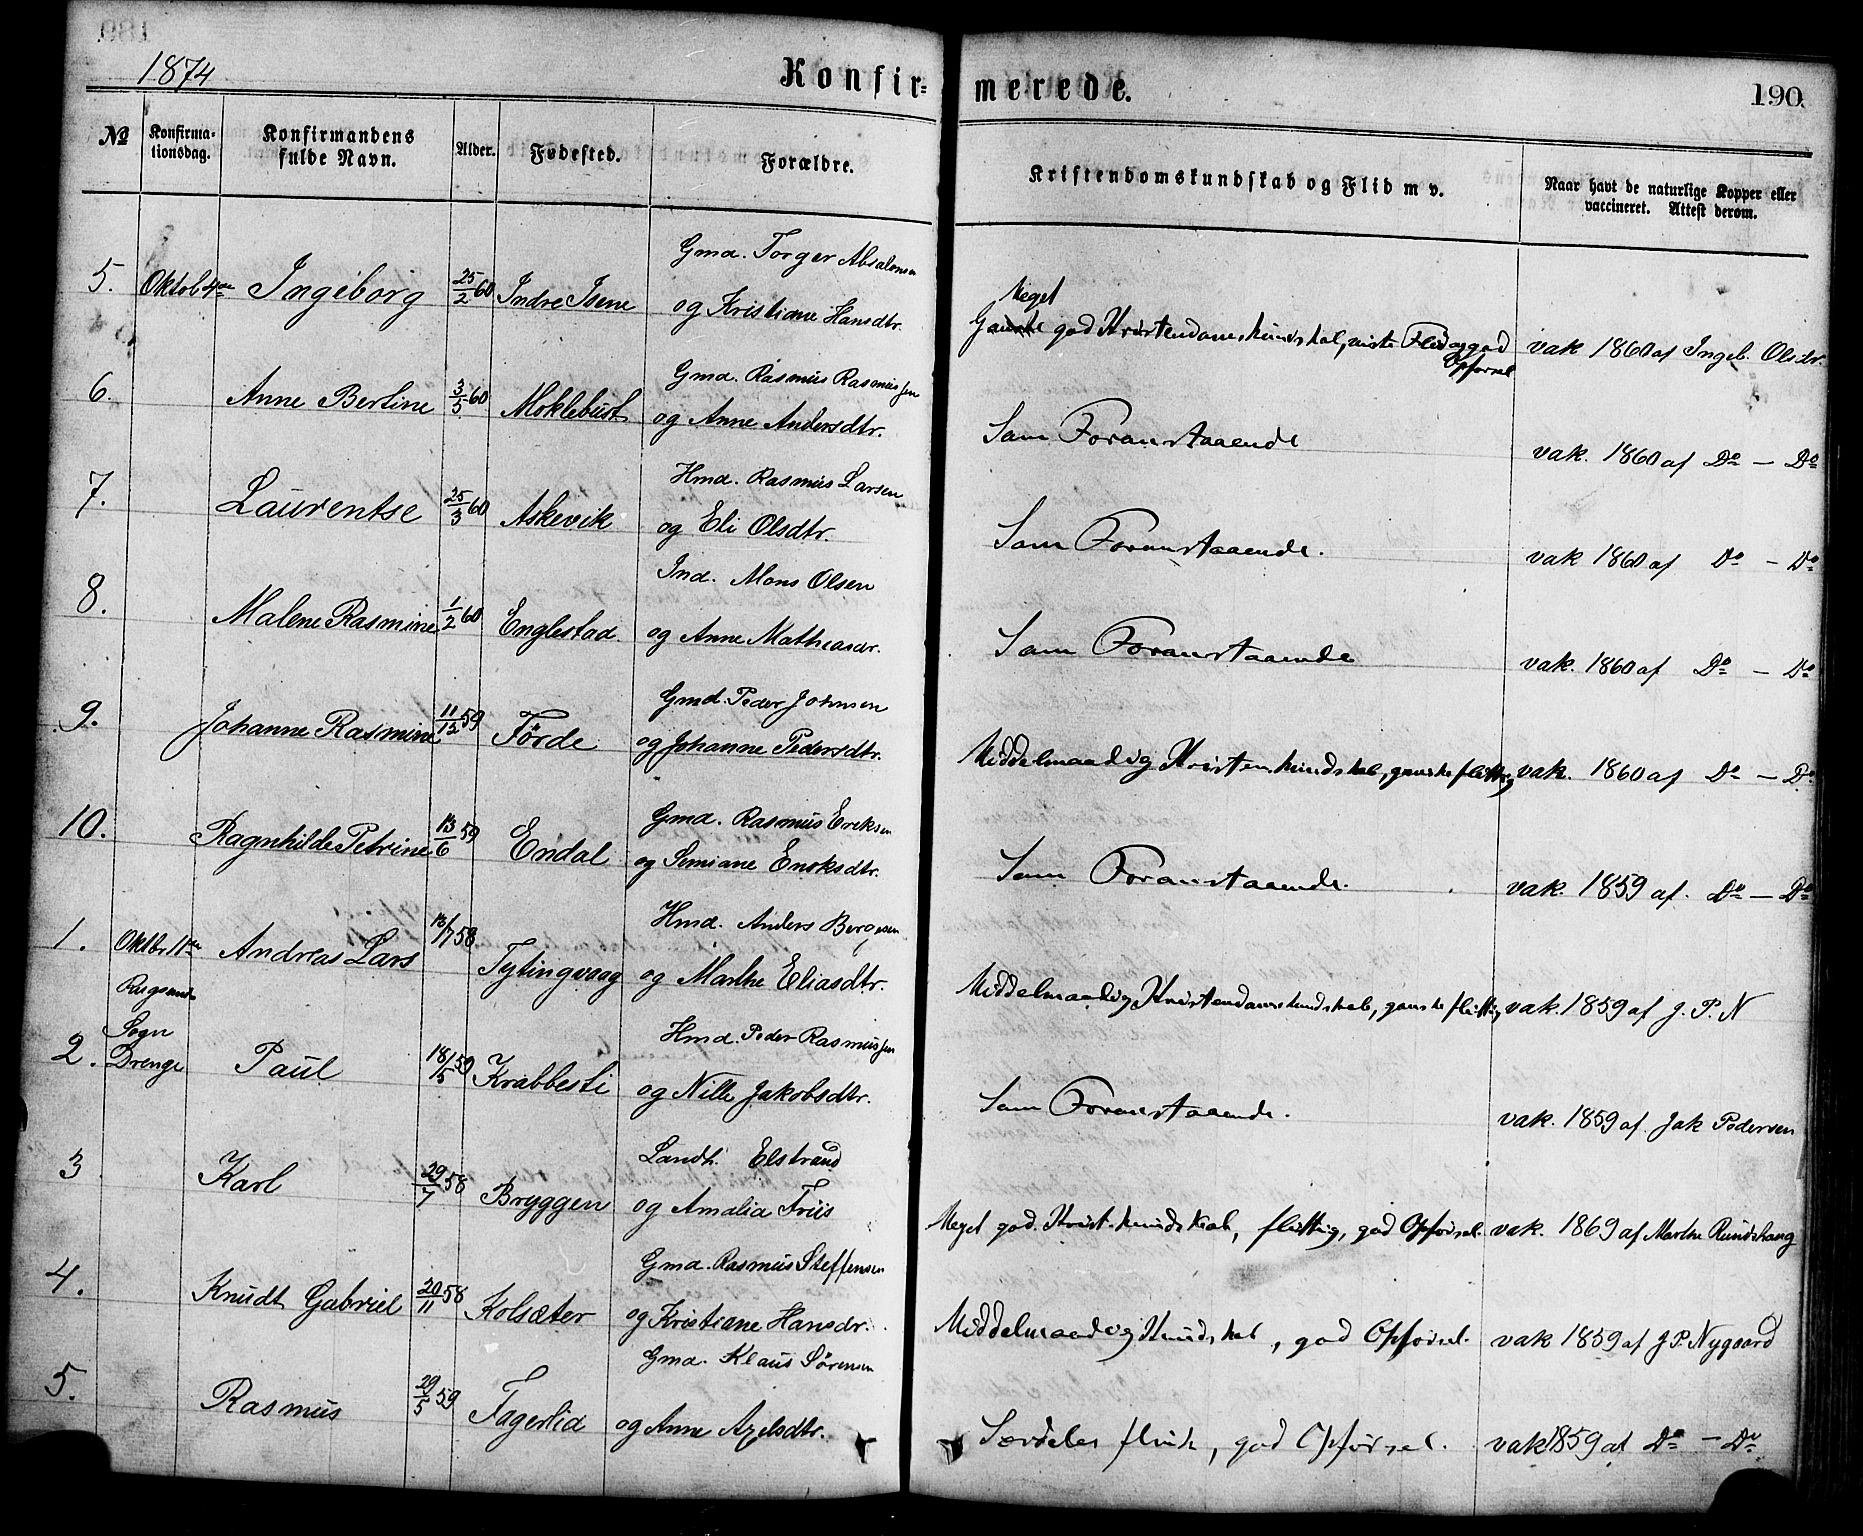 1874 Konfir= merede. 190.
№ Konfirma-tionsdag. Konfirmandens fulde Navn. Alder. Fødested. Forældre. Kristendomskundskab og Flid m v. Naar havt de naturlige Kopper eller vaccineret. Attest derom.
Gmd. Torger Absalonsen
5. Oktob 4de Ingeborg 25/2 60 Indre Isene og Kristiane Hansdtr.
Meget
Ganske god Kristendomskundskab, megen Flid og god Opførsel vak 1860 af Ingeb. Olsdtr.
Gmd. Rasmus Rasmussen
6. Anne Bertine 3/5 60 Moklebust og Anne Andersdtr. Som Foranstaaende vak. 1860 af Do – Do
Hmd. Rasmus Larsen
7. Laurentse 25/3 60 Askevik og Eli Olsdtr. Som Foranstaaende. vak 1860 af Do – Do
Ind. Mons Olsen
8. Malene Rasmine 1/2 60 Englestad og Anne Mathiasdr. Som Foranstaaende vak. 1860 af Do – Do
Gmd. Peder Johnsen
9. Johanne Rasmine 11/12 59 Förde og Johanne Pedersdtr. Middelmaadig Kristenkundskab, ganske flittig vak. 1860 af Do – Do
Gmd. Rasmus Eriksen
10. Ragnhilde Petrine 13/6 59 Endal og Semiane Enoksdtr. Som Foranstaaende. vak. 1859 af. Do – Do
Hmd. Anders Børgesen
1. Oktbr 11te Andreas Lars 13/7 58 Tytingvaag og Marthe Eliasdtr. Middelmaadig Kristendomskundskab, ganske flittig, vak. 1859 af J. P. N
Rugsund
Sogn
Hmd. Peder Rasmussen
2. Drenge Paul 18/5 59 Krabbesti og Nille Jakobsdtr. Som Foranstaaende. vak. 1859 af. Jak Pedersen
Landh. Elstrand
3 Karl 29/7 58 Bryggen og Amalia Friis Meget god. Krist. kundskab, flittig, god Opførsel. vak. 1869 af Marthe Rundehaug
Gmd. Rasmus Steffensen
4. Knudt Gabriel 20/11 58 Kolsæter og Kristiane Hansdr. Middelmaadig Kundskab, god Opførsel. vak 1859 af J P. Nygaard
Gmd. Klaus Sørensen
5. Rasmus 29/5 59 Fagerlid og Anne Axelsdtr. Særdeles flink, god Opførsel. vak 1859 af Do – Do